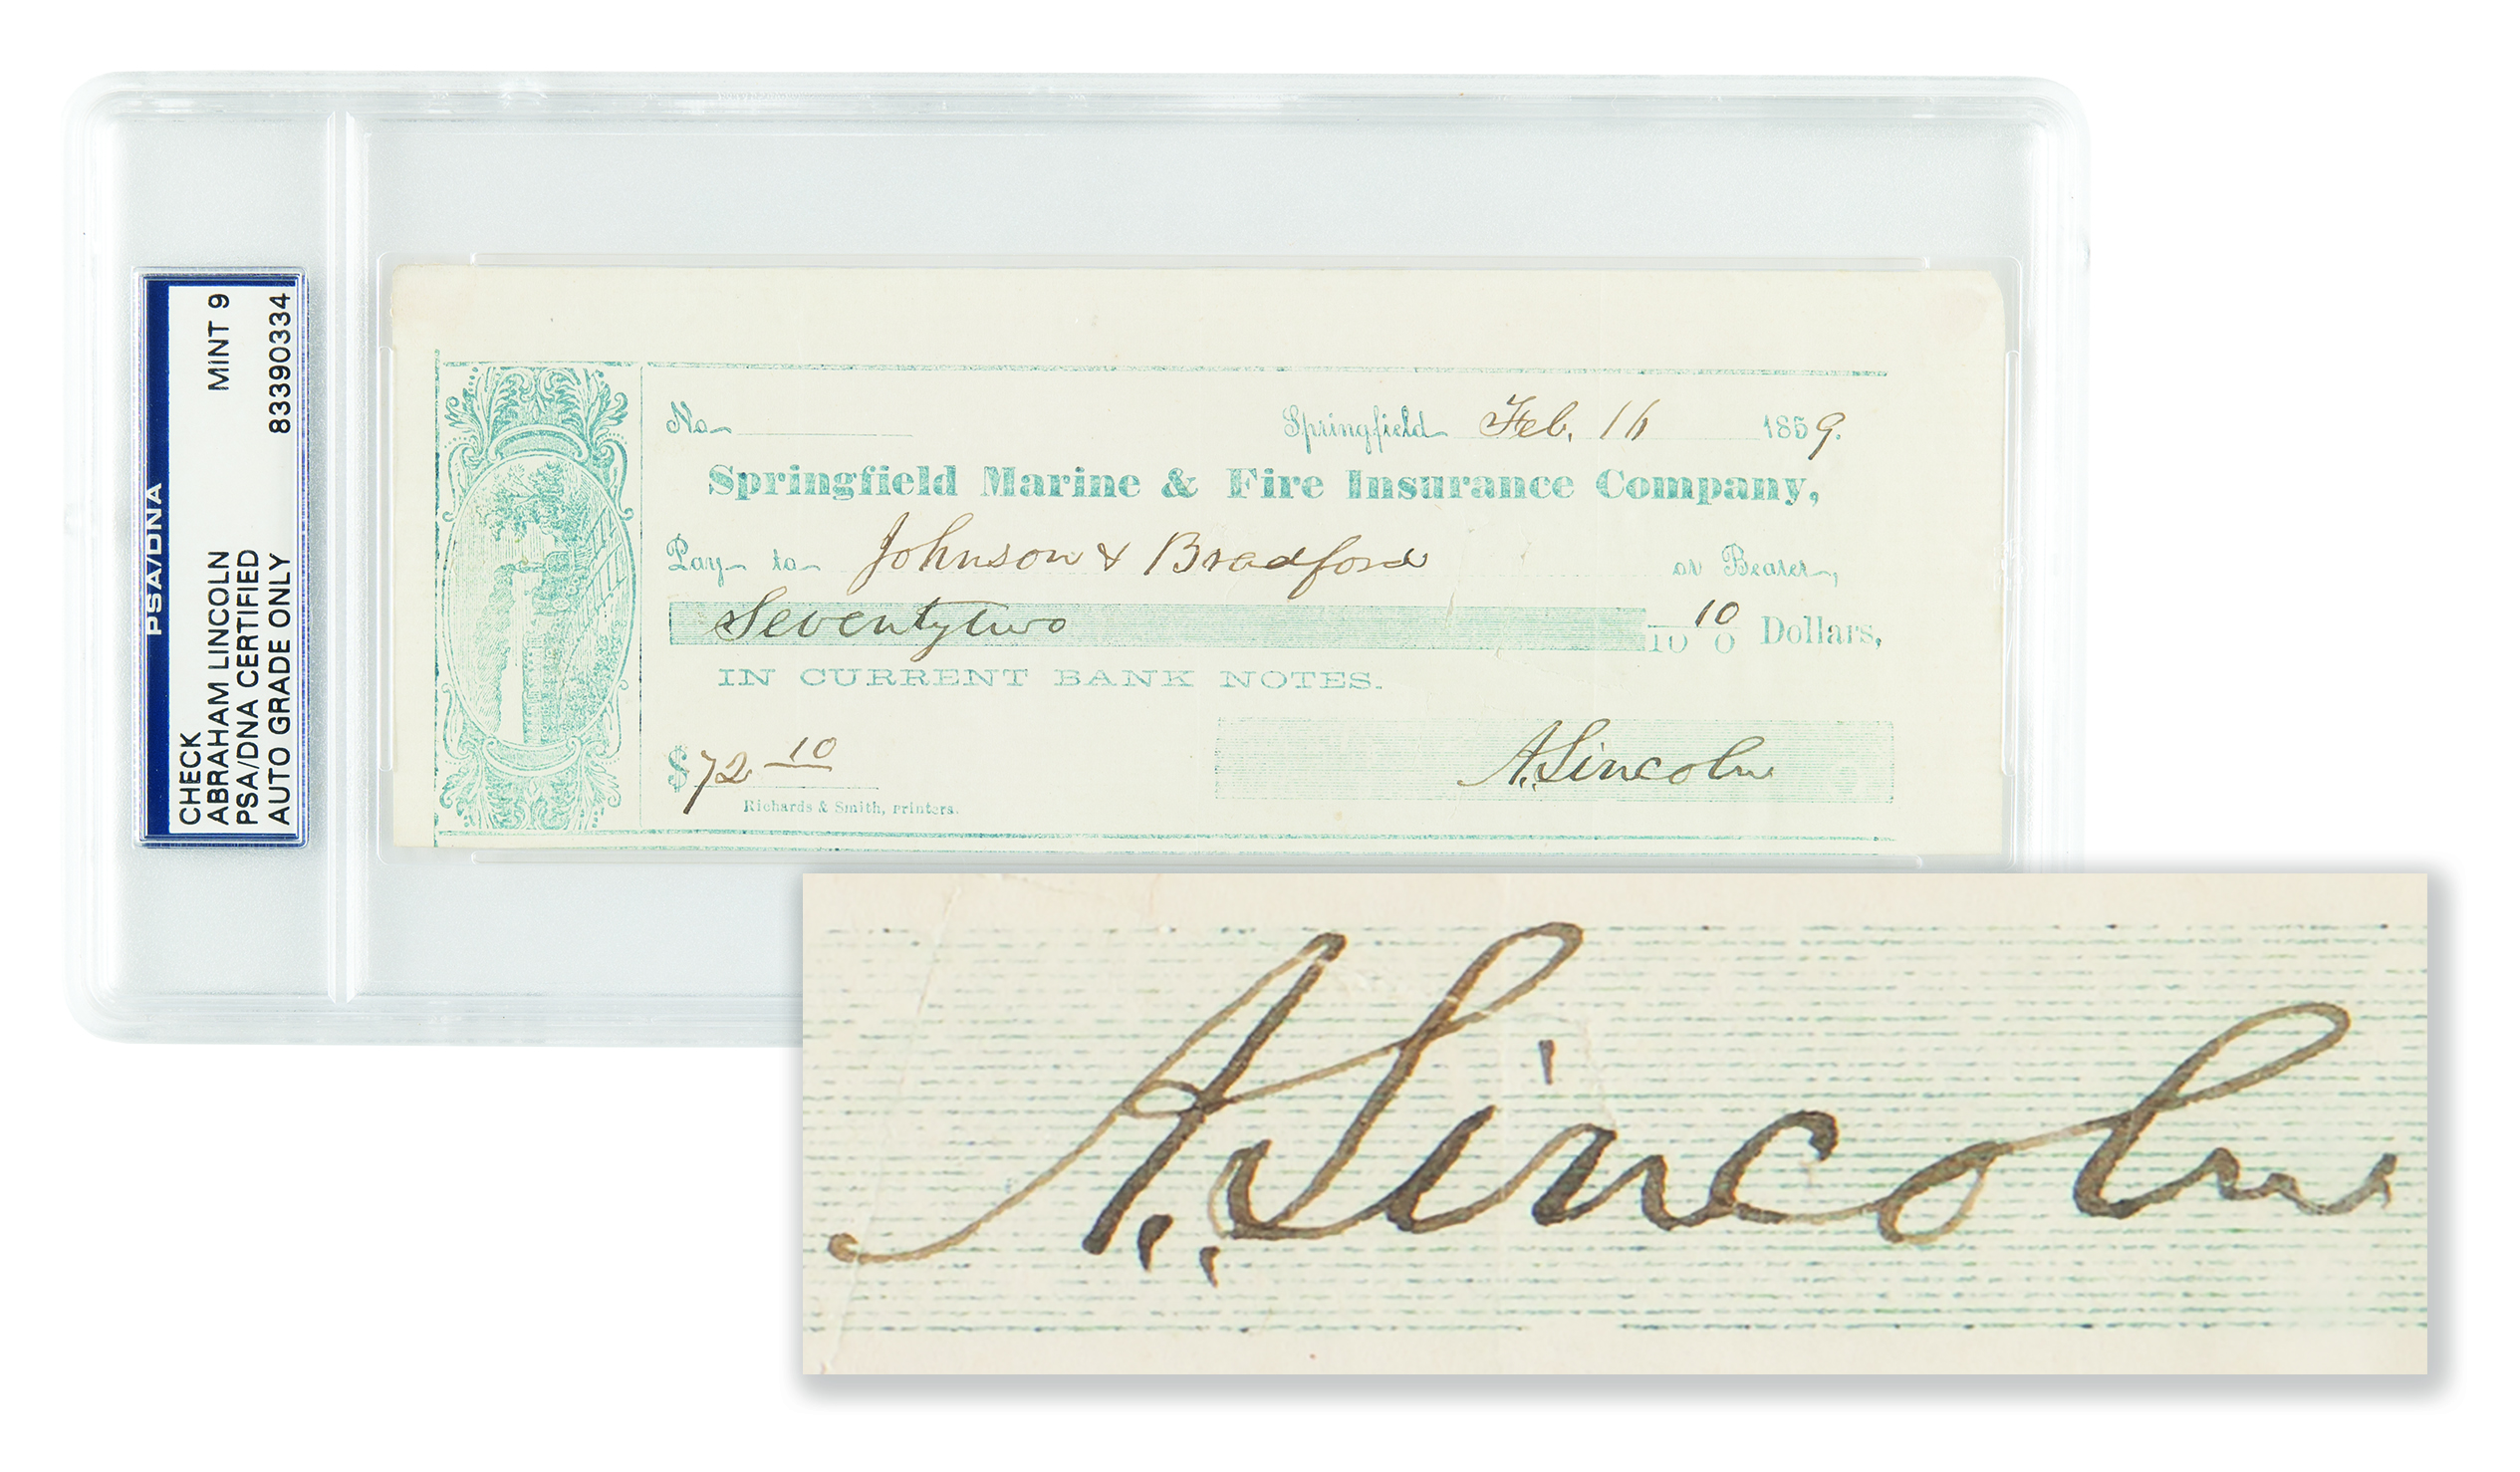 PSA/DNA
CHECK
ABRAHAM LINCOLN MINT 9
PSA/DNA CERTIFIED
AUTO GRADE ONLY 83390334
No.
Springfield Feb. 16 1859.
Springfield Marine & Fire Insurance Company,
Pay to Johnson & Bradford or Bearer,
Seventytwo 10/100 Dollars,
IN CURRENT BANK NOTES.
$72 10 A. Lincoln
Richards & Smith, printers.
A. Lincoln